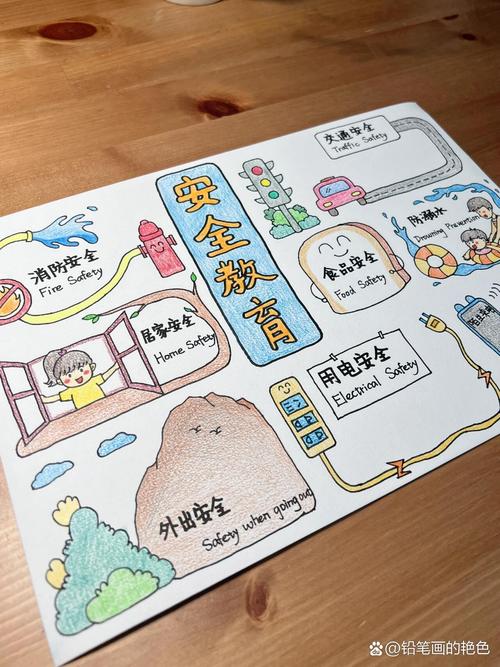 安全教育
消防安全
Fire Safety
居家安全
Home Safety
外出安全
Safety when going out
交通安全
Traffic Safety
食品安全
Food Safety
防溺水
Drowning Prevention
用电安全
Electrical Safety
@铅笔画的艳色